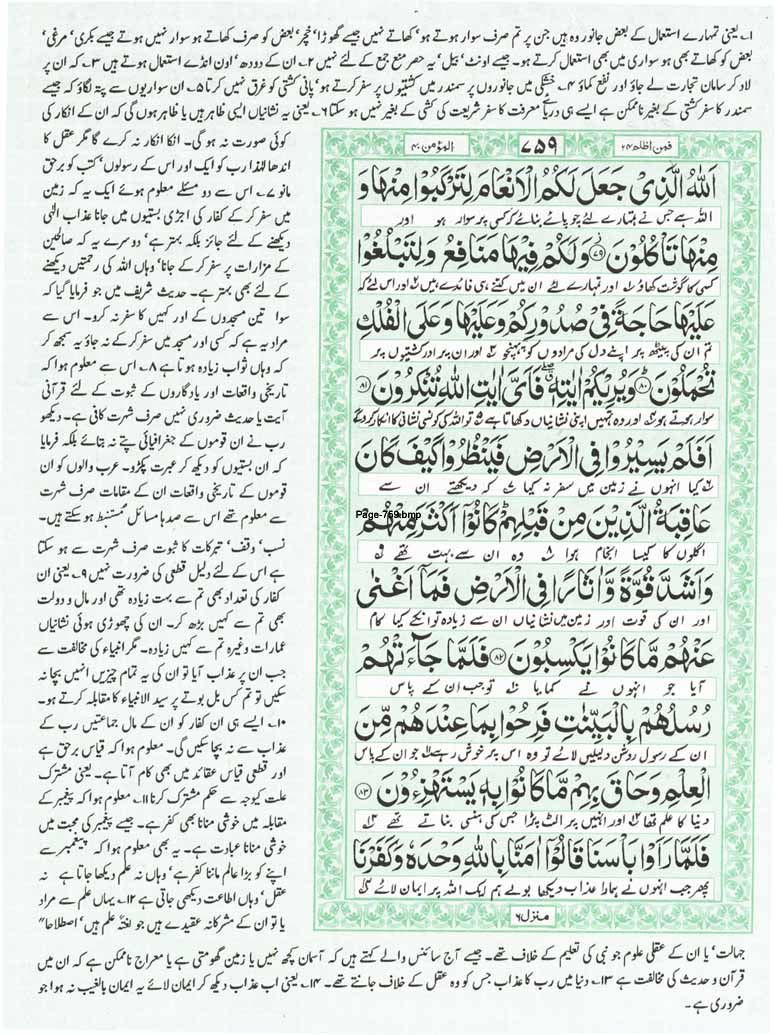 ۱۔ یعنی تمہارے استعمال کے بعض جانور وہ ہیں جن پر تم صرف سوار ہوتے ہو‘ کھاتے نہیں جیسے گھوڑا‘ خچر‘ بعض کو صرف کھاتے ہو سوار نہیں ہوتے جیسے بکری‘ مرغی‘
بعض کو کھاتے بھی ہو سواری میں بھی استعمال کرتے ہو۔ جیسے اونٹ‘ بیل‘ یہ حصر منع جمع کے لئے نہیں ۲۔ ان کے دودھ‘ اون انڈے استعمال ہوتے ہیں ۳۔ کہ ان پر
لاد کر سامان تجارت لے جاؤ اور نفع کماؤ ۴۔ خشکی میں جانوروں پر سمندر میں کشتیوں پر سفر کرتے ہو‘ پانی کشتی کو غرق نہیں کرتا ۵۔ ان سواریوں سے پتہ لگاؤ کہ جیسے
سمندر کا سفر کشتی کے بغیر ناممکن ہے ایسے ہی دریائے معرفت کا سفر شریعت کی کشتی کے بغیر نہیں ہو سکتا ۶۔ یعنی یہ نشانیاں ایسی ظاہر ہیں یا ظاہر ہوں گی کہ ان کے انکار کی
فمن اظلم ۲۴
۷۵۹
المؤمن ۴۰
اَللّٰهُ الَّذِیْ جَعَلَ لَكُمُ الْاَنْعَامَ لِتَرْكَبُوْا مِنْهَا وَ
اللہ ہے جس نے تمہارے لئے چوپائے بنائے کہ کسی پر سوار ہو اور
مِنْهَا تَاْكُلُوْنَ ۷۹ وَلَكُمْ فِیْهَا مَنَافِعُ وَلِتَبْلُغُوْا
کسی کا گوشت کھاؤ اور تمہارے لئے ان میں کتنے ہی فائدے ہیں اور اس لئے کہ
عَلَیْهَا حَاجَةً فِیْ صُدُوْرِكُمْ وَعَلَیْهَا وَعَلَی الْفُلْكِ
تم ان کی پیٹھ پر اپنے دل کی مرادوں کو پہنچو اور ان پر اور کشتیوں پر
تُحْمَلُوْنَ ۸۰ وَیُرِیْكُمْ اٰیٰتِهٖ فَاَیَّ اٰیٰتِ اللّٰهِ تُنْكِرُوْنَ ۸۱
سوار ہوتے ہو اور وہ تمہیں اپنی نشانیاں دکھاتا ہے تو اللہ کی کونسی نشانی کا انکار کرو گے
اَفَلَمْ یَسِیْرُوْا فِی الْاَرْضِ فَیَنْظُرُوْا كَیْفَ كَانَ
تو کیا انہوں نے زمین میں سفر نہ کیا کہ دیکھتے ان سے
Page-759.bmp
عَاقِبَةُ الَّذِیْنَ مِنْ قَبْلِهِمْ كَانُوْا اَكْثَرَ مِنْهُمْ
اگلوں کا کیسا انجام ہوا وہ ان سے بہت تھے
وَاَشَدَّ قُوَّةً وَّاٰثَارًا فِی الْاَرْضِ فَمَا اَغْنٰی
اور ان کی قوت اور زمین میں نشانیاں ان سے زیادہ تو انکے کیا کام
عَنْهُمْ مَّا كَانُوْا یَكْسِبُوْنَ ۸۲ فَلَمَّا جَآءَتْهُمْ
آیا جو انہوں نے کمایا تو جب ان کے پاس
رُسُلُهُمْ بِالْبَیِّنٰتِ فَرِحُوْا بِمَا عِنْدَهُمْ مِّنَ
ان کے رسول روشن دلیلیں لائے تو وہ اسی پر خوش رہے جو ان کے پاس
الْعِلْمِ وَحَاقَ بِهِمْ مَّا كَانُوْا بِهٖ یَسْتَهْزِءُوْنَ ۸۳
دنیا کا علم تھا اور انہیں پر الٹ پڑا جس کی ہنسی بناتے تھے
فَلَمَّا رَاَوْا بَاْسَنَا قَالُوْا اٰمَنَّا بِاللّٰهِ وَحْدَهٗ وَكَفَرْنَا
پھر جب انہوں نے ہمارا عذاب دیکھا بولے ہم ایک اللہ پر ایمان لائے
منزل ۶
کوئی صورت نہ ہو گی۔ انکا انکار نہ کرے گا مگر عقل کا
اندھا لہٰذا رب کو ایک اور اس کے رسولوں‘ کتب کو برحق
مانو ۷۔ اس سے دو مسئلے معلوم ہوئے ایک یہ کہ زمین
میں سفر کر کے کفار کی اجڑی بستیوں میں جانا عذاب الٰہی
دیکھنے کے لئے جائز بلکہ بہتر ہے‘ دوسرے یہ کہ صالحین
کے مزارات پر سفر کر کے جانا‘ وہاں اللہ کی رحمتیں دیکھنے
کے لئے بھی بہتر ہے۔ حدیث شریف میں جو فرمایا گیا کہ
سوا تین مسجدوں کے اور کہیں کا سفر نہ کرو۔ اس سے
مراد یہ ہے کہ کسی اور مسجد میں سفر کر کے نہ جاؤ یہ سمجھ کر
کہ وہاں ثواب زیادہ ہوتا ہے ۸۔ اس سے معلوم ہوا کہ
تاریخی واقعات اور یادگاروں کے ثبوت کے لئے قرآنی
آیت یا حدیث ضروری نہیں صرف شہرت کافی ہے۔ دیکھو
رب نے ان قوموں کے جغرافیائی پتے نہ بتائے بلکہ فرمایا
کہ ان بستیوں کو دیکھ کر عبرت پکڑو۔ عرب والوں کو ان
قوموں کے تاریخی واقعات ان کے مقامات صرف شہرت
سے معلوم تھے اس سے صدہا مسائل مستنبط ہو سکتے ہیں۔
نسب‘ وقف‘ تبرکات کا ثبوت صرف شہرت سے ہو سکتا
ہے اس کے لئے دلیل قطعی کی ضرورت نہیں ۹۔ یعنی ان
کفار کی تعداد بھی تم سے بہت زیادہ تھی اور مال و دولت
بھی تم سے کہیں بڑھ کر۔ ان کی چھوڑی ہوئی نشانیاں
عمارات وغیرہ تم سے کہیں زیادہ۔ مگر انبیاء کی مخالفت سے
جب ان پر عذاب آیا تو ان کی یہ تمام چیزیں انہیں بچا نہ
سکیں تو تم کس بل بوتے پر سید الانبیاء کا مقابلہ کرتے ہو۔
۱۰۔ ایسے ہی ان کفار کو ان کے مال جماعتیں رب کے
عذاب سے نہ بچا سکیں گی۔ معلوم ہوا کہ قیاس برحق ہے
اور قطعی قیاس عقائد میں بھی کام آتا ہے۔ یعنی مشترک
علت کیوجہ سے حکم مشترک کرنا ۱۱۔ معلوم ہوا کہ پیغمبر کے
مقابلہ میں خوشی منانا بھی کفر ہے۔ جیسے پیغمبر کی محبت میں
خوشی منانا عبادت ہے۔ یہ بھی معلوم ہوا کہ پیغمبر سے
اپنے کو بڑا عالم ماننا کفر ہے‘ وہاں نہ علم دیکھا جاتا ہے نہ
عقل‘ وہاں اطاعت دیکھی جاتی ہے ۱۲۔ یہاں علم سے مراد
یا تو ان کے مشرکانہ عقیدے ہیں جو لغتہً علم ہیں‘ اصطلاحا"
جہالت‘ یا ان کے عقلی علوم جو نبی کی تعلیم کے خلاف تھے۔ جیسے آج سائنس والے کہتے ہیں کہ آسمان کچھ نہیں یا زمین گھومتی ہے یا معراج ناممکن ہے کہ ان میں
قرآن و حدیث کی مخالفت ہے ۱۳۔ دنیا میں رب کا عذاب جس کو وہ عقل کے خلاف جانتے تھے۔ ۱۴۔ یعنی اب عذاب دیکھ کر ایمان لائے یہ ایمان بالغیب نہ ہوا جو
ضروری ہے۔